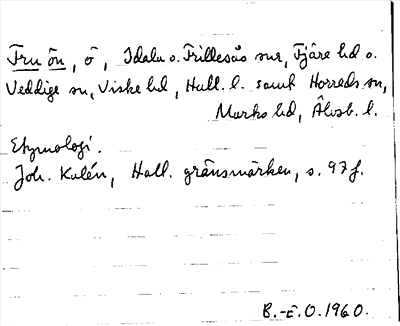 Fru ön, ö, Idala o. Frillesås snr, Fjäre hd o.
Veddige sn, Viske hd, Hall. l. samt Horreds sn,
Marks hd, Älvsb. l.
Etymologi.
Joh. Kalén, Hall. gränsmärken, s. 97 f.
B.-E.O. 1960.